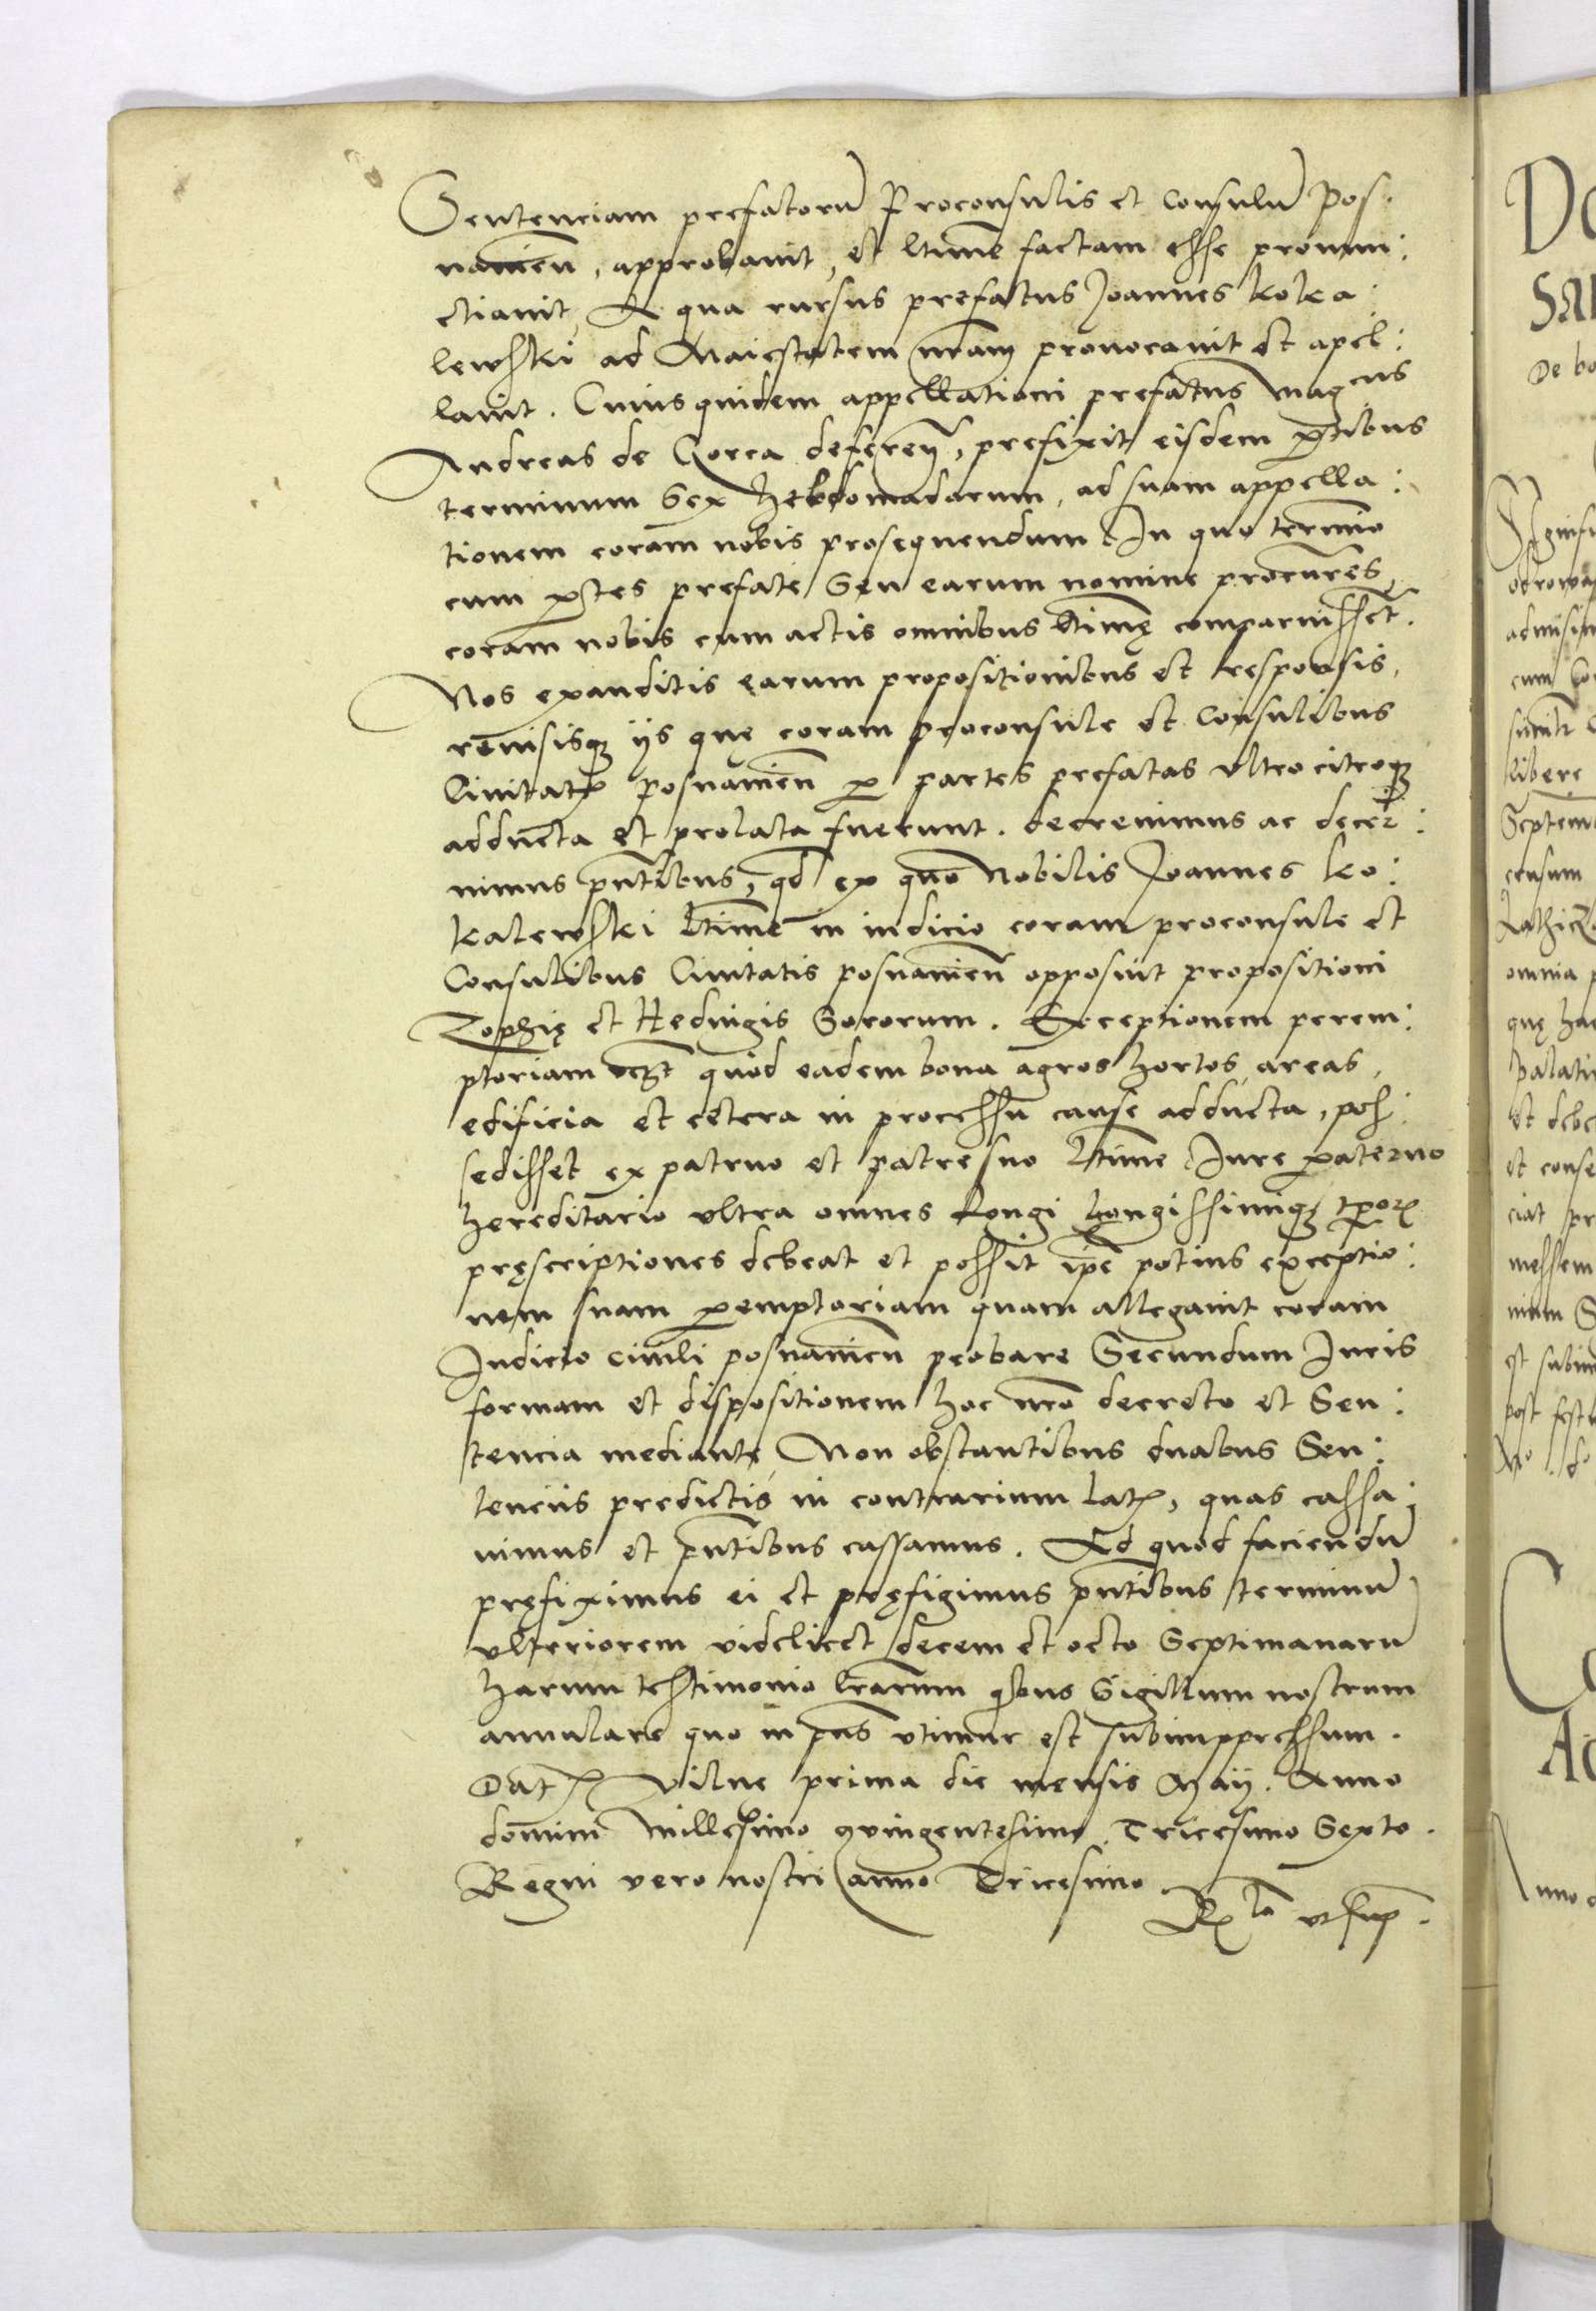 Sentenciam prefatorū Proconsulis et Consulū Pos:
nanień, approbavit, et ltīme factam esse pronun:
ctiavit, A qua rursus prefatus Joannes Koka:
lewski ad Maiestatem nrām provocavit et apel:
lavit. Cuius quidem appellationi prefatus magcus
Andreas de Gorca deferen, prefixit eisdem ptibus
terminum Sex hebdomadarum, ad suam appella:
tionem coram nobis prosequendum In quo termino
cum ptes prefate Seu earum nomine procures,
coram nobis cum actis omnibus ltīmę comparuissent.
Nos exauditis earum propositionibus et responsis,
revisisq iis quę coram proconsule et Consulibus
Civitatis posnanień p partes prefatas ultro citroq
adducta et prolata fuerunt. decrevimus ac decer:
nimus pntibus, qd ex quo Nobilis Joannes Ko:
kalewski ltīme in iudicio coram proconsule et
Consulibus Civitatis posnanień opposuit propositioni
Zophię et Hedvigis Sororum. Exceptionem perem:
ptoriam vcȝt quod eadem bona agros hortos, areas,
edificia et cetera in processu cause adducta, pos:
sedisset ex patruo et patre suo ltīme Iure paterno
hereditario ultra omnes longi longissimiq tpor
pręscriptiones debeat et possit ipē potius exceptio:
nem suam pemptoriam quam allegavit coram
Iudicio civili posnanień probare Secundum Iuris
formam et dispositionem hoc nrō decreto et Sen:
tencia mediante, Non obstantibus duabus Sen:
tenciis predictis in contrarium lat, quas cassa:
vimus et pntibus cassamus. Ad quod faciendū
pręfiximus ei et pręfigimus pntibus terminū
ulteriorem videlicet decem et octo Septimanarū
harum testimonio lrārum qbus Sigillum nostrum
annulare quo in pns utimur est subimppressum.
Dat Vilnę prima die mensis Maij. Anno
domini Millesimo quingentesimo Tricesimo Sexto.
Regni vero nostri anno Tricesimo
Rlo ut sup.